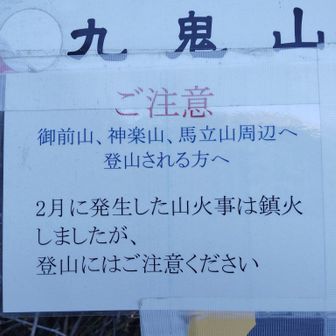 九鬼山
ご注意
御前山、神楽山、馬立山周辺へ
登山される方へ
2月に発生した山火事は鎮火
しましたが、
登山にはご注意ください